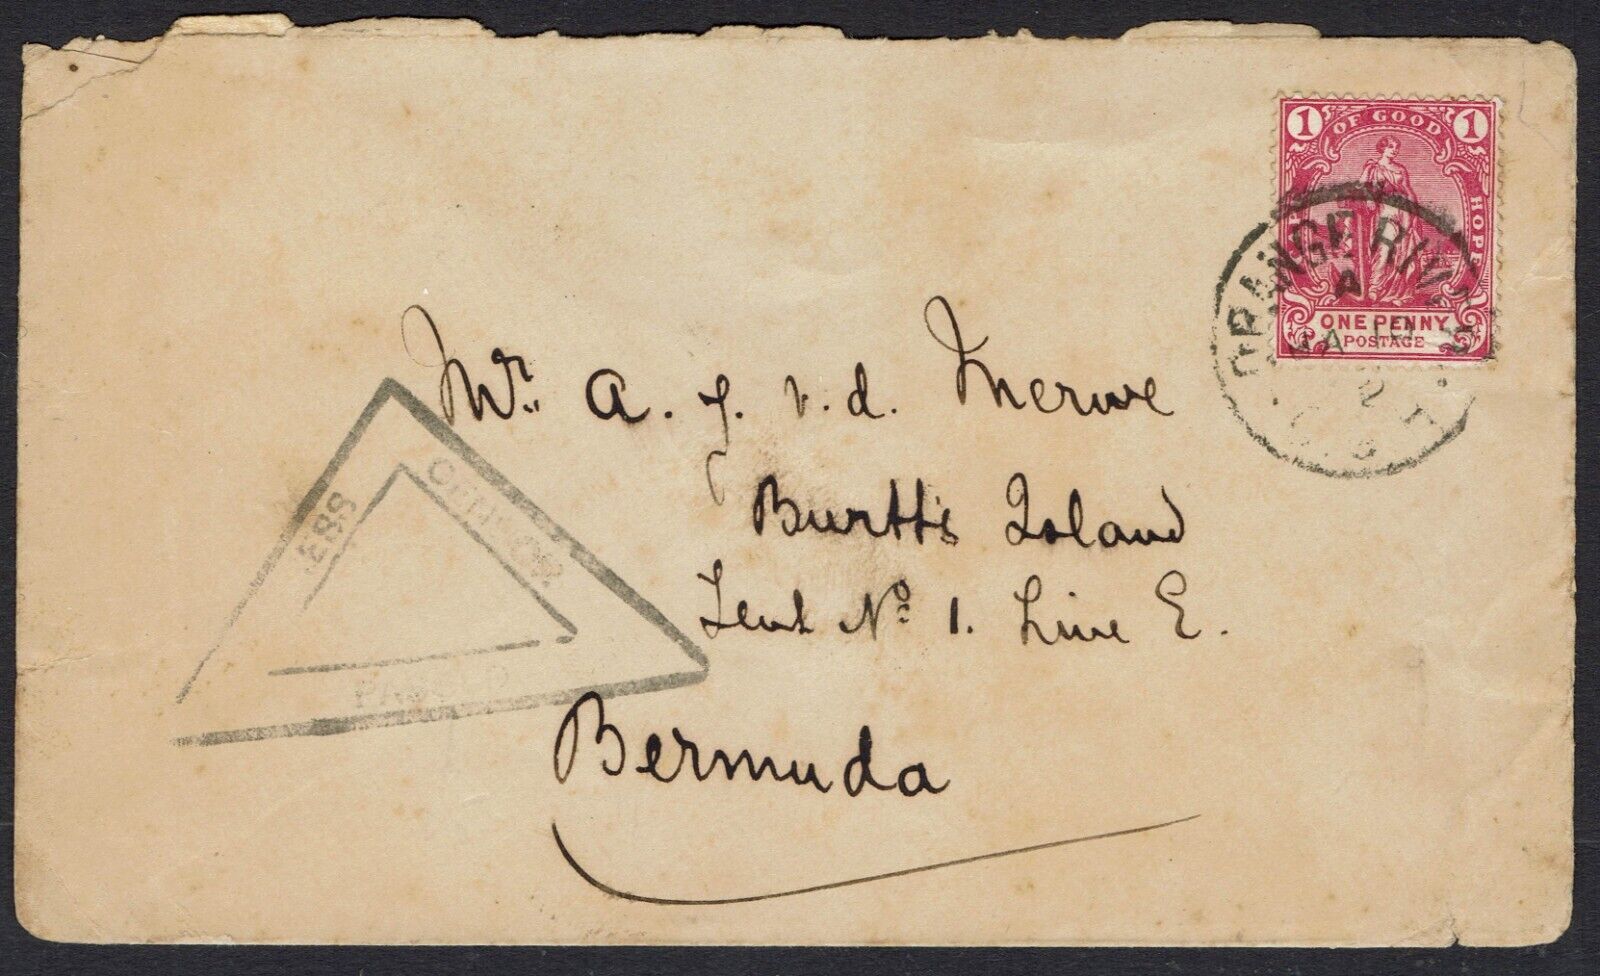 1 OF GOOD 1
HOPE
ONE PENNY
POSTAGE
ORANGE RIVER
A
JA 10
2
Mr. A. J. v. d. Merwe
Burtt's Island
Tent No. 1. Line E.
Bermuda
PRESS
CENSOR
PASSED